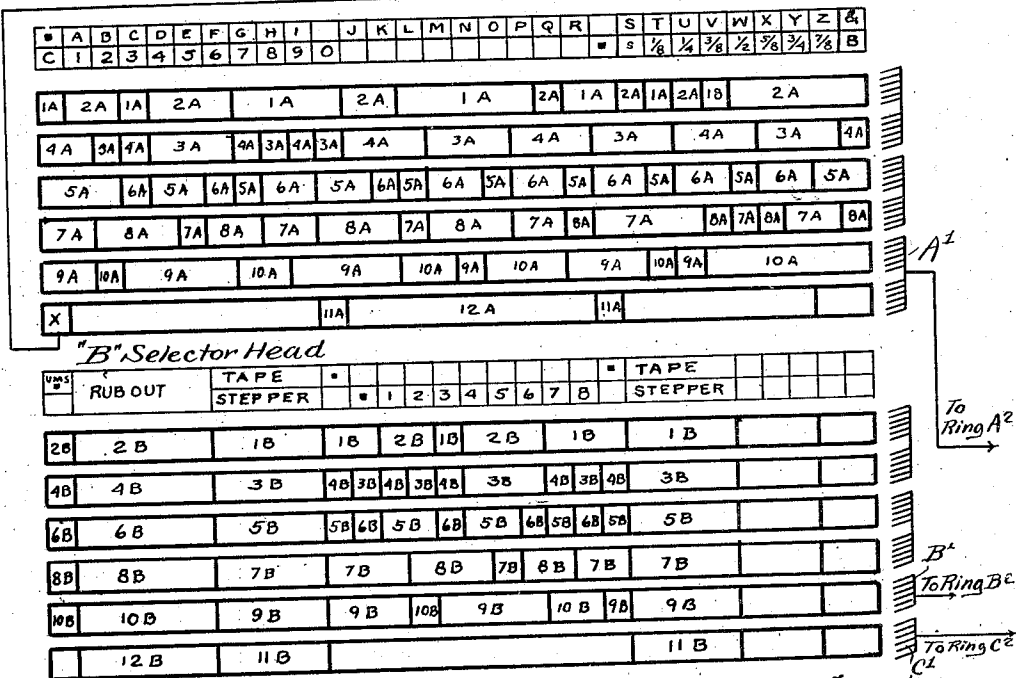 ■ A B C D E F G H I J K L M N O P Q R S T U V W X Y Z &
C 1 2 3 4 5 6 7 8 9 0 ■ S ⅛ ¼ ⅜ ½ ⅝ ¾ ⅞ B
1A 2A 1A 2A 1A 2A 1A 2A 1A 2A 1A 2A 1B 2A
4A 3A 4A 3A 4A 3A 4A 3A 4A 3A 4A 3A 4A 3A 4A
5A 6A 5A 6A 5A 6A 5A 6A 5A 6A 5A 6A 5A 6A 5A 6A 5A 6A 5A
7A 8A 7A 8A 7A 8A 7A 8A 7A 8A 7A 8A 7A 8A 7A 8A
9A 10A 9A 10A 9A 10A 9A 10A 9A 10A 9A 10A
A¹
X 11A 12A 11A
"B" Selector Head
UMS RUB OUT TAPE ■ ■ TAPE
STEPPER ■ 1 2 3 4 5 6 7 8 STEPPER
To
Ring A²
2B 2B 1B 1B 2B 1B 2B 1B 1B
4B 4B 3B 4B 3B 4B 3B 4B 3B 4B 3B 4B 3B
6B 6B 5B 5B 6B 5B 6B 5B 6B 5B 6B 5B 5B
B¹
8B 8B 7B 7B 8B 7B 8B 7B 7B
To Ring B²
10B 10B 9B 9B 10B 9B 10B 9B 9B
12B 11B 11B
To Ring C²
C¹